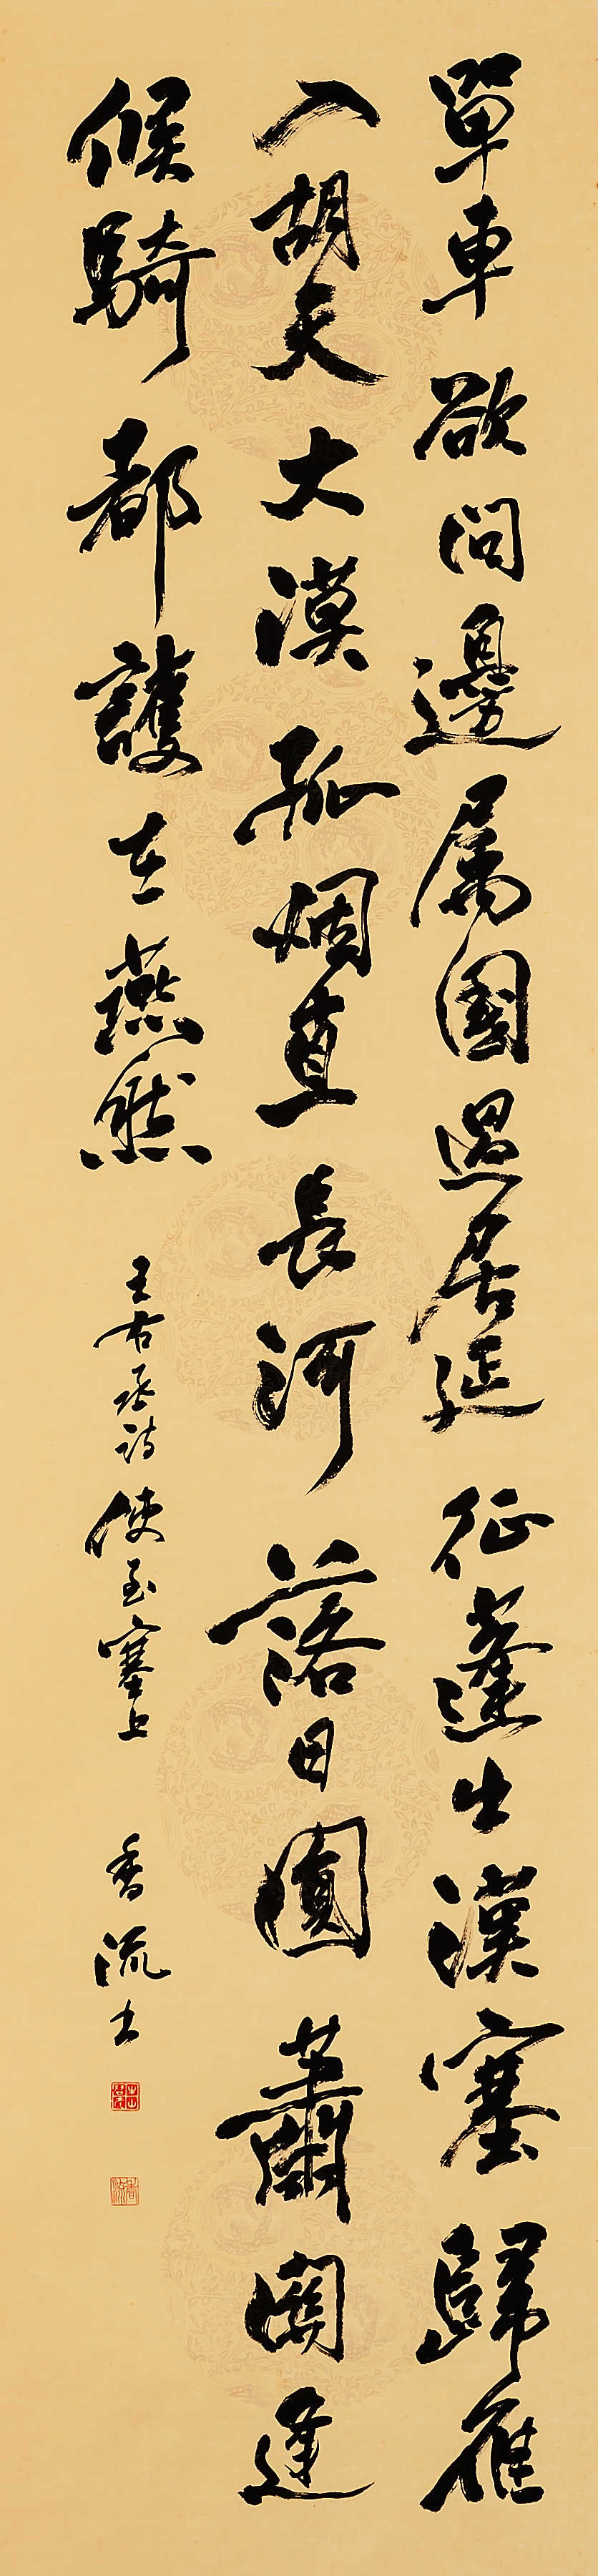 單車欲問邊属國過居延征蓬出漢塞歸雁
入胡天大漠孤烟直長河落日圓蕭關逢
候騎都護在燕然
王右丞詩使至塞上
香流士
香流